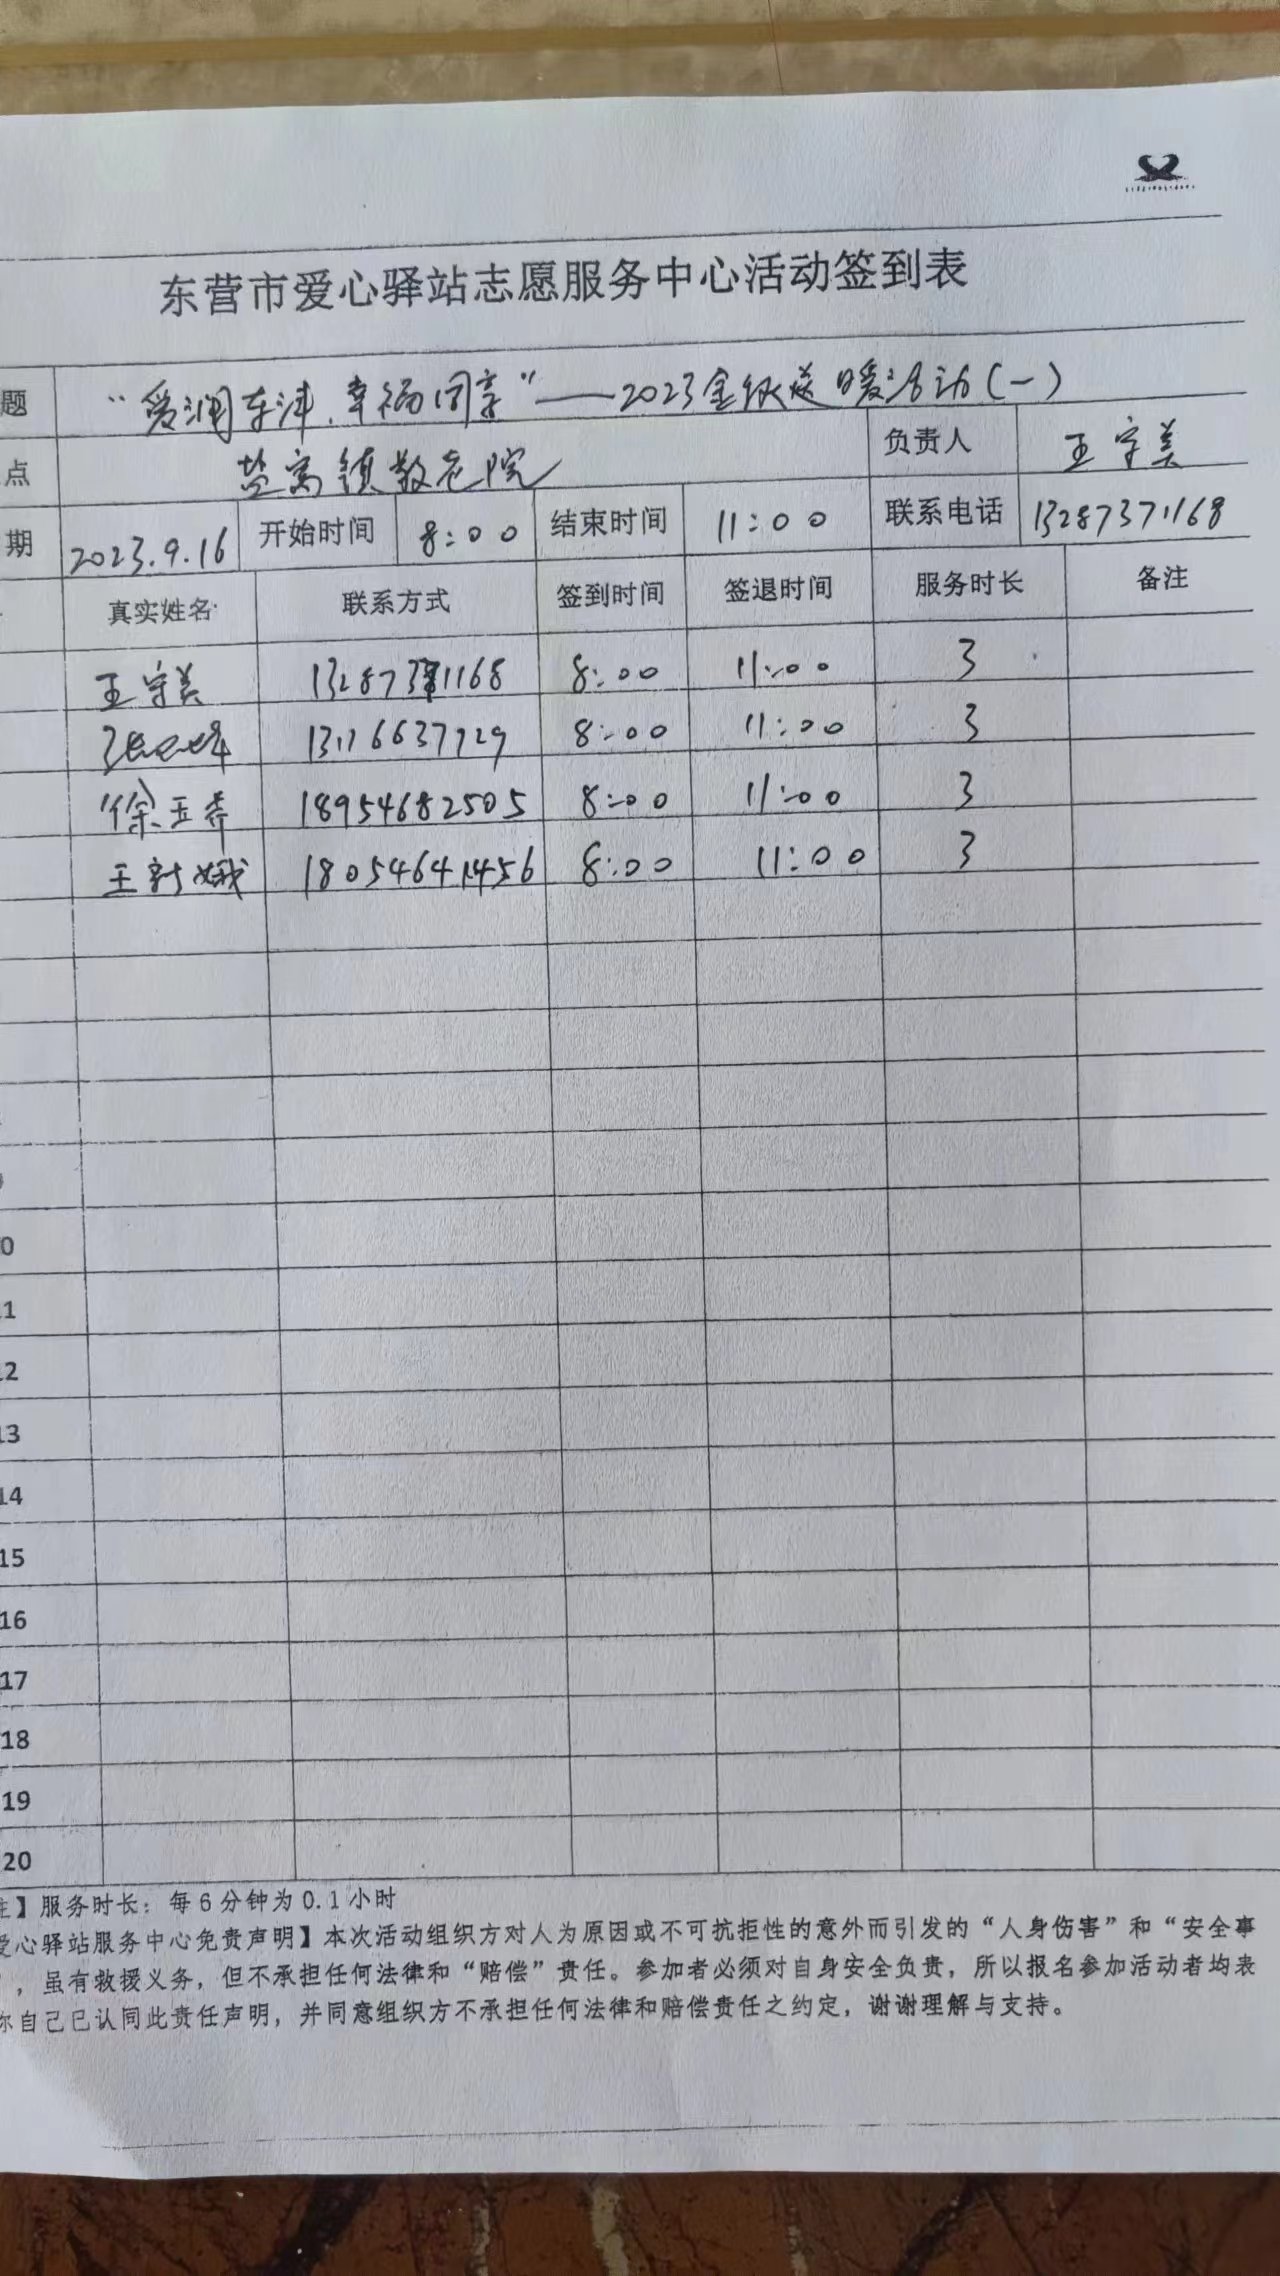 东营市爱心驿站志愿服务中心活动签到表
题 “爱润东津.幸福同享”——2023金秋送暖活动(一)
点 盐窝镇敬老院 负责人 王守美
期 2023.9.16 开始时间 8:00 结束时间 11:00 联系电话 13287371168
真实姓名 联系方式 签到时间 签退时间 服务时长 备注
王守美 13287371168 8:00 11:00 3
8:00 11:00 3
徐玉 18954682505 8:00 11:00 3
王新娥 18054641456 8:00 11:00 3
0
1
2
13
14
15
16
17
18
19
20
注】服务时长：每6分钟为0.1小时
爱心驿站服务中心免责声明】本次活动组织方对人为原因或不可抗拒性的意外而引发的“人身伤害”和“安全事
”，虽有救援义务，但不承担任何法律和“赔偿”责任。参加者必须对自身安全负责，所以报名参加活动者均表
你自己已认同此责任声明，并同意组织方不承担任何法律和赔偿责任之约定，谢谢理解与支持。